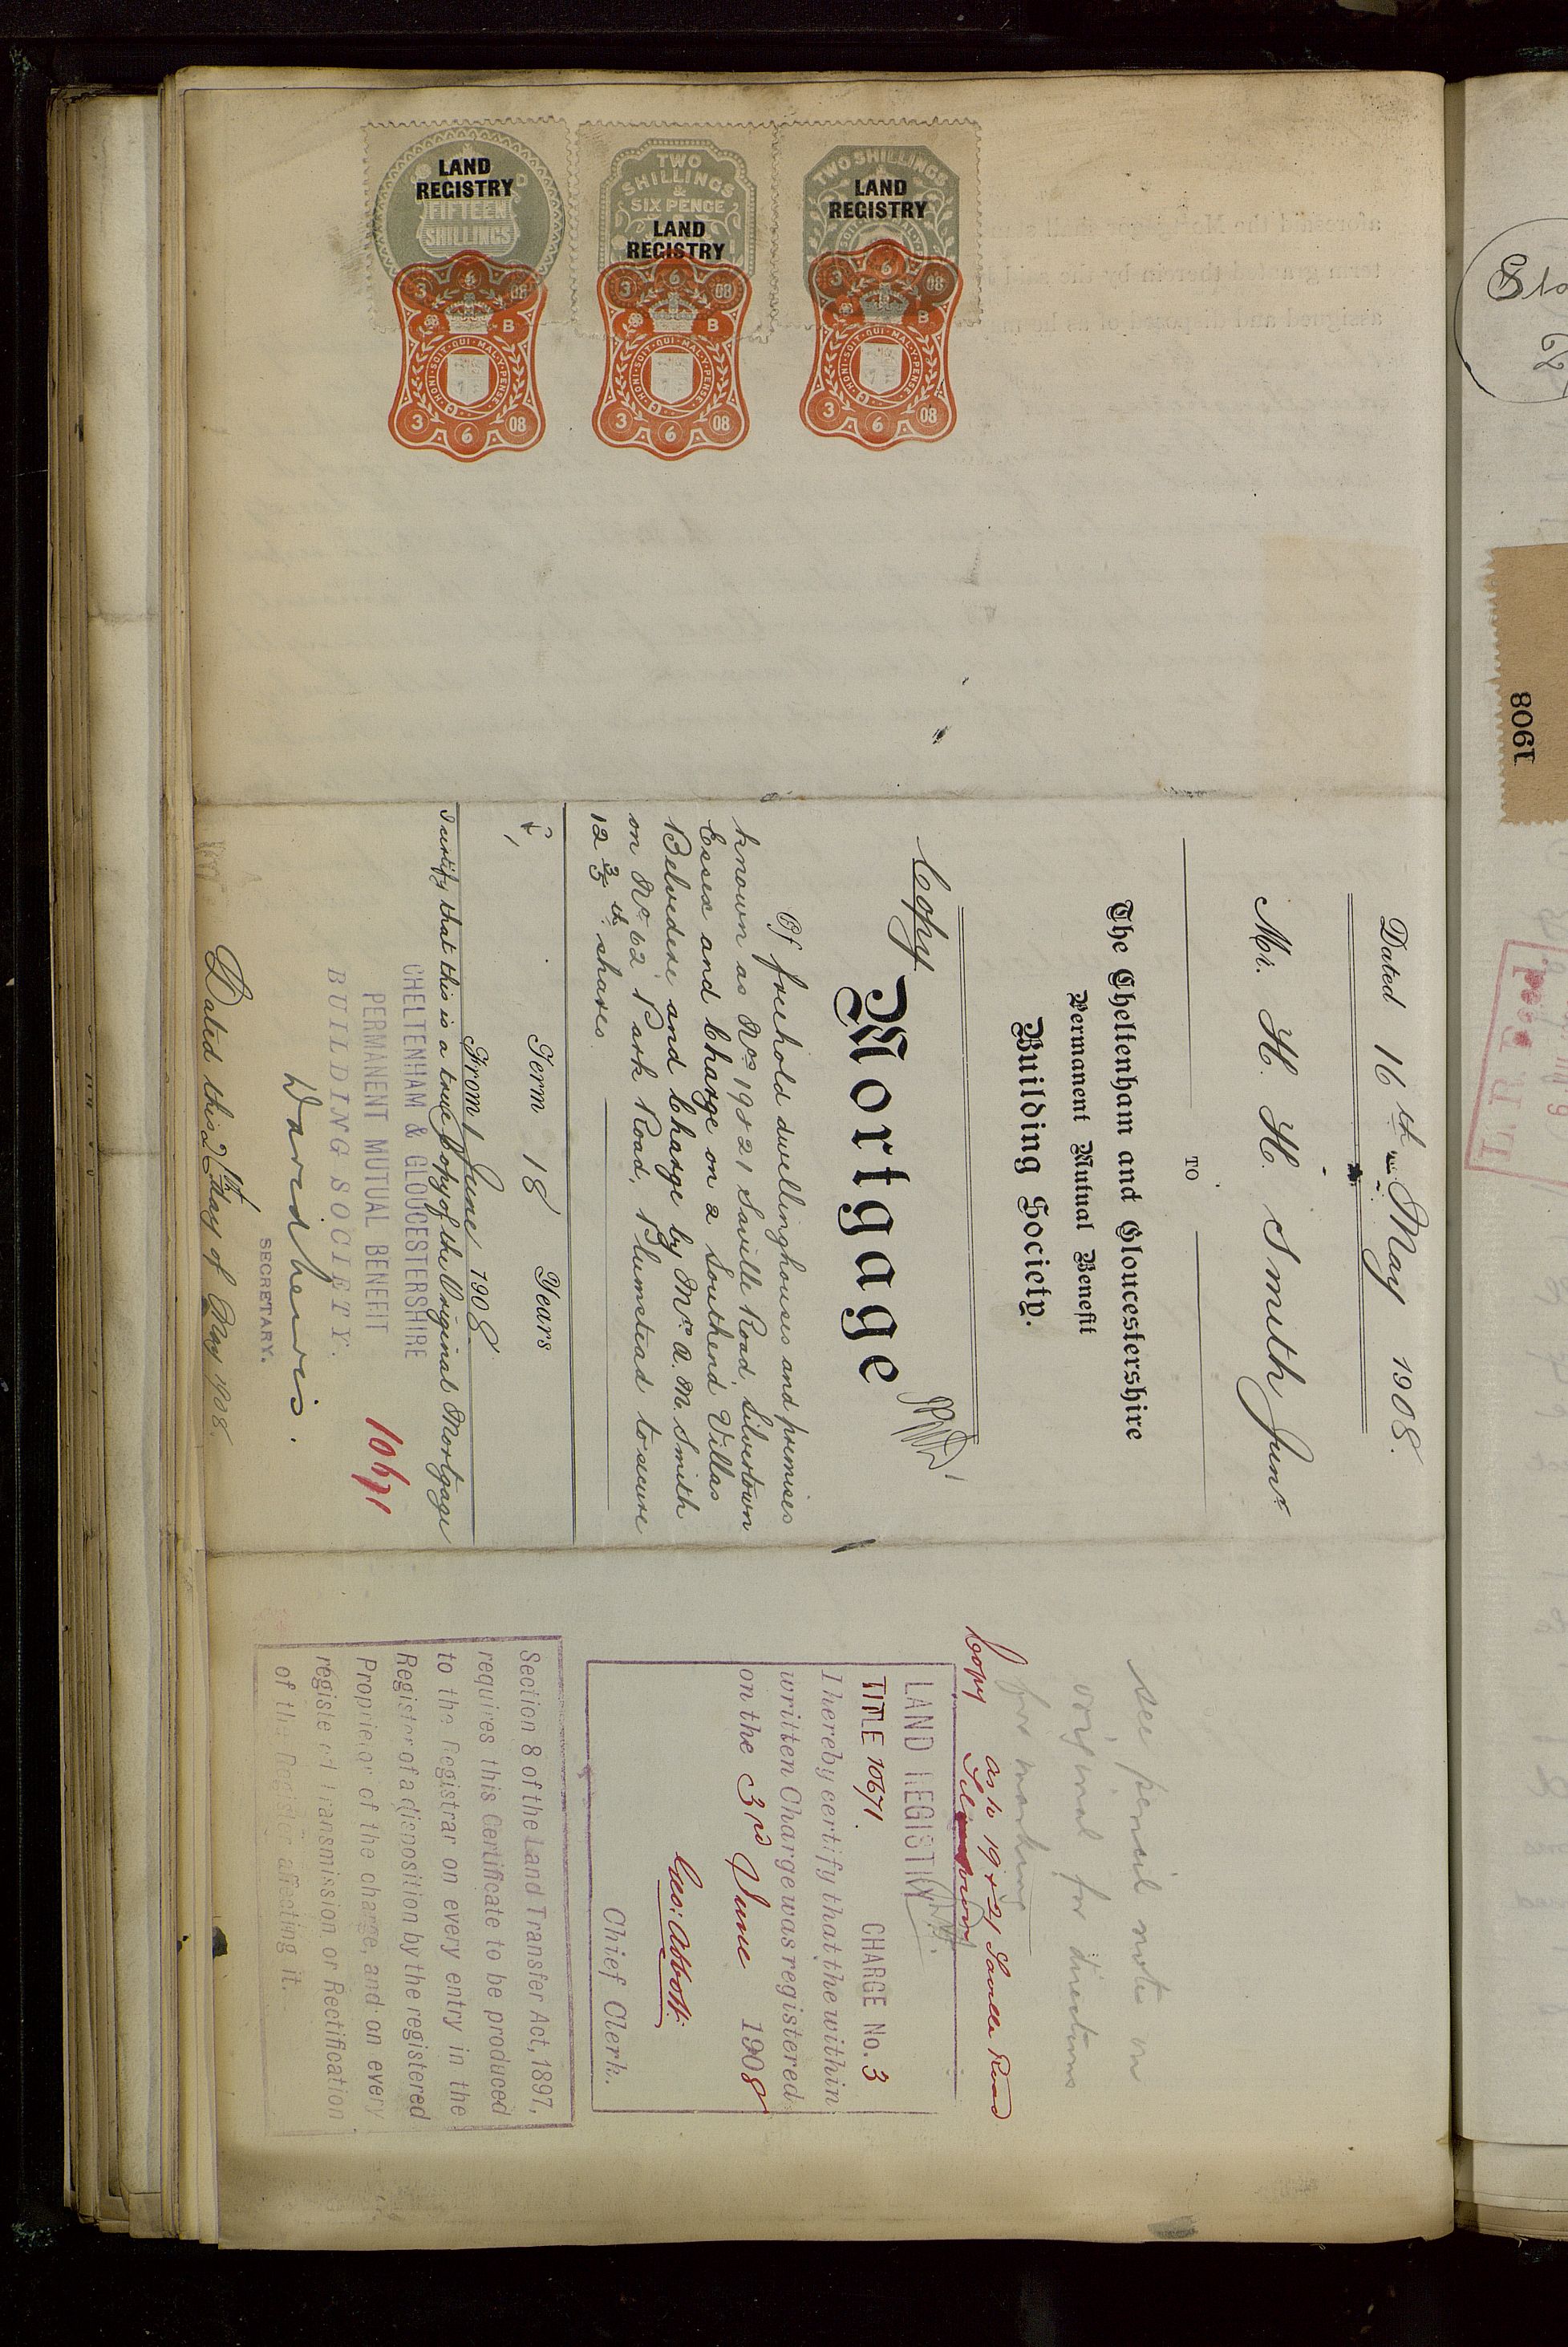 LAND
REGISTRY
FIFTEEN
SHILLINGS
TWO
SHILLINGS
&
SIX PENCE
LAND
REGISTRY
TWO SHILLINGS
LAND
REGISTRY
3 6 08
B
HONI·SOIT·QUI·MAL·Y·PENSE
3 6 08
3 6 08
B
HONI·SOIT·QUI·MAL·Y·PENSE
3 6 08
3 6 08
B
HONI·SOIT·QUI·MAL·Y·PENSE
3 6 08
Dated 16th May 1908.
Mr. H. H. Smith Junr
TO
The Cheltenham and Gloucestershire
Permanent Mutual Benefit
Building Society.
Copy
Mortgage
Of freehold dwellinghouses and premises
known as Nos 19 & 21 Saville Road, Silvertown
Essex and Charge on 2 Southend Villas
Belvedere and Charge by Mrs A. M. Smith
on No. 62 Park Road, Plumstead to secure
12 3/5 th shares
£
Term 18 Years
From 1 June 1908
I certify that this is a true Copy of the Original Mortgage
CHELTENHAM & GLOUCESTERSHIRE
PERMANENT MUTUAL BENEFIT
BUILDING SOCIETY.
10671
SECRETARY.
Dated this 21st day of May 1908.
see pencil notes on
original for directions
for marking
Copy as to 19 & 21 Saville Road
Silvertown
LAND REGISTRY
TITLE 10671. CHARGE No. 3
I hereby certify that the within
written Charge was registered
on the 3rd June 1908
Geo: Abbott
Chief Clerk.
Section 8 of the Land Transfer Act, 1897,
requires this Certificate to be produced
to the Registrar on every entry in the
Register of a disposition by the registered
Proprietor of the charge, and on every
registered transmission or Rectification
of the Register affecting it.
1908